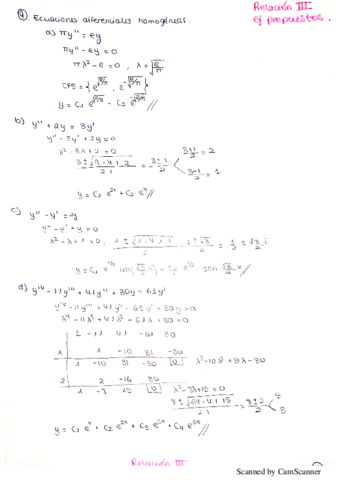 Relación III:
ej propuestos.
④. Ecuaciones diferenciales homogéneas.
a) πy'' = ey
πy'' - ey = 0
πλ² - e = 0 , λ = √(e/π)
SFS = { e^√(e/π) , e^-√(e/π) }
y = C1 e^√(e/π) - C2 e^-√(e/π) //
b) y'' + 2y = 3y'
y'' - 3y' + 2y = 0
λ² - 3λ + 2 = 0
(3 ± √(9 - 4·1·2)) / 2·1 = (3 ± 1) / 2
(3+1)/2 = 2
(3-1)/2 = 1
y = C1 e^2x + C2 e^x //
c) y'' - y' = -y
y'' - y' + y = 0
λ² - λ + 1 = 0 ; (1 ± √(1 - 4·1·1)) / 2·1 = (1 ± √-3) / 2 = 1/2 ± √3/2 i
d) y^IV - 11y''' + 41y'' + 30y = 61y'
y^IV - 11y''' + 41y'' - 61y' + 30y = 0
λ⁴ - 11λ³ + 41λ² - 61λ + 30 = 0
1 -11 41 -61 30
1 1 -10 31 -30
1 -10 31 -30 0 λ³ - 10λ² + 31λ - 30
2 2 -16 30
1 -8 15 0 λ² - 8λ + 15 = 0
(8 ± √(64 - 4·15)) / 2·1 = (8 ± 2) / 2
5
3
y = C1 e^x + C2 e^2x + C3 e^5x + C4 e^3x //
Relación III
Scanned by CamScanner